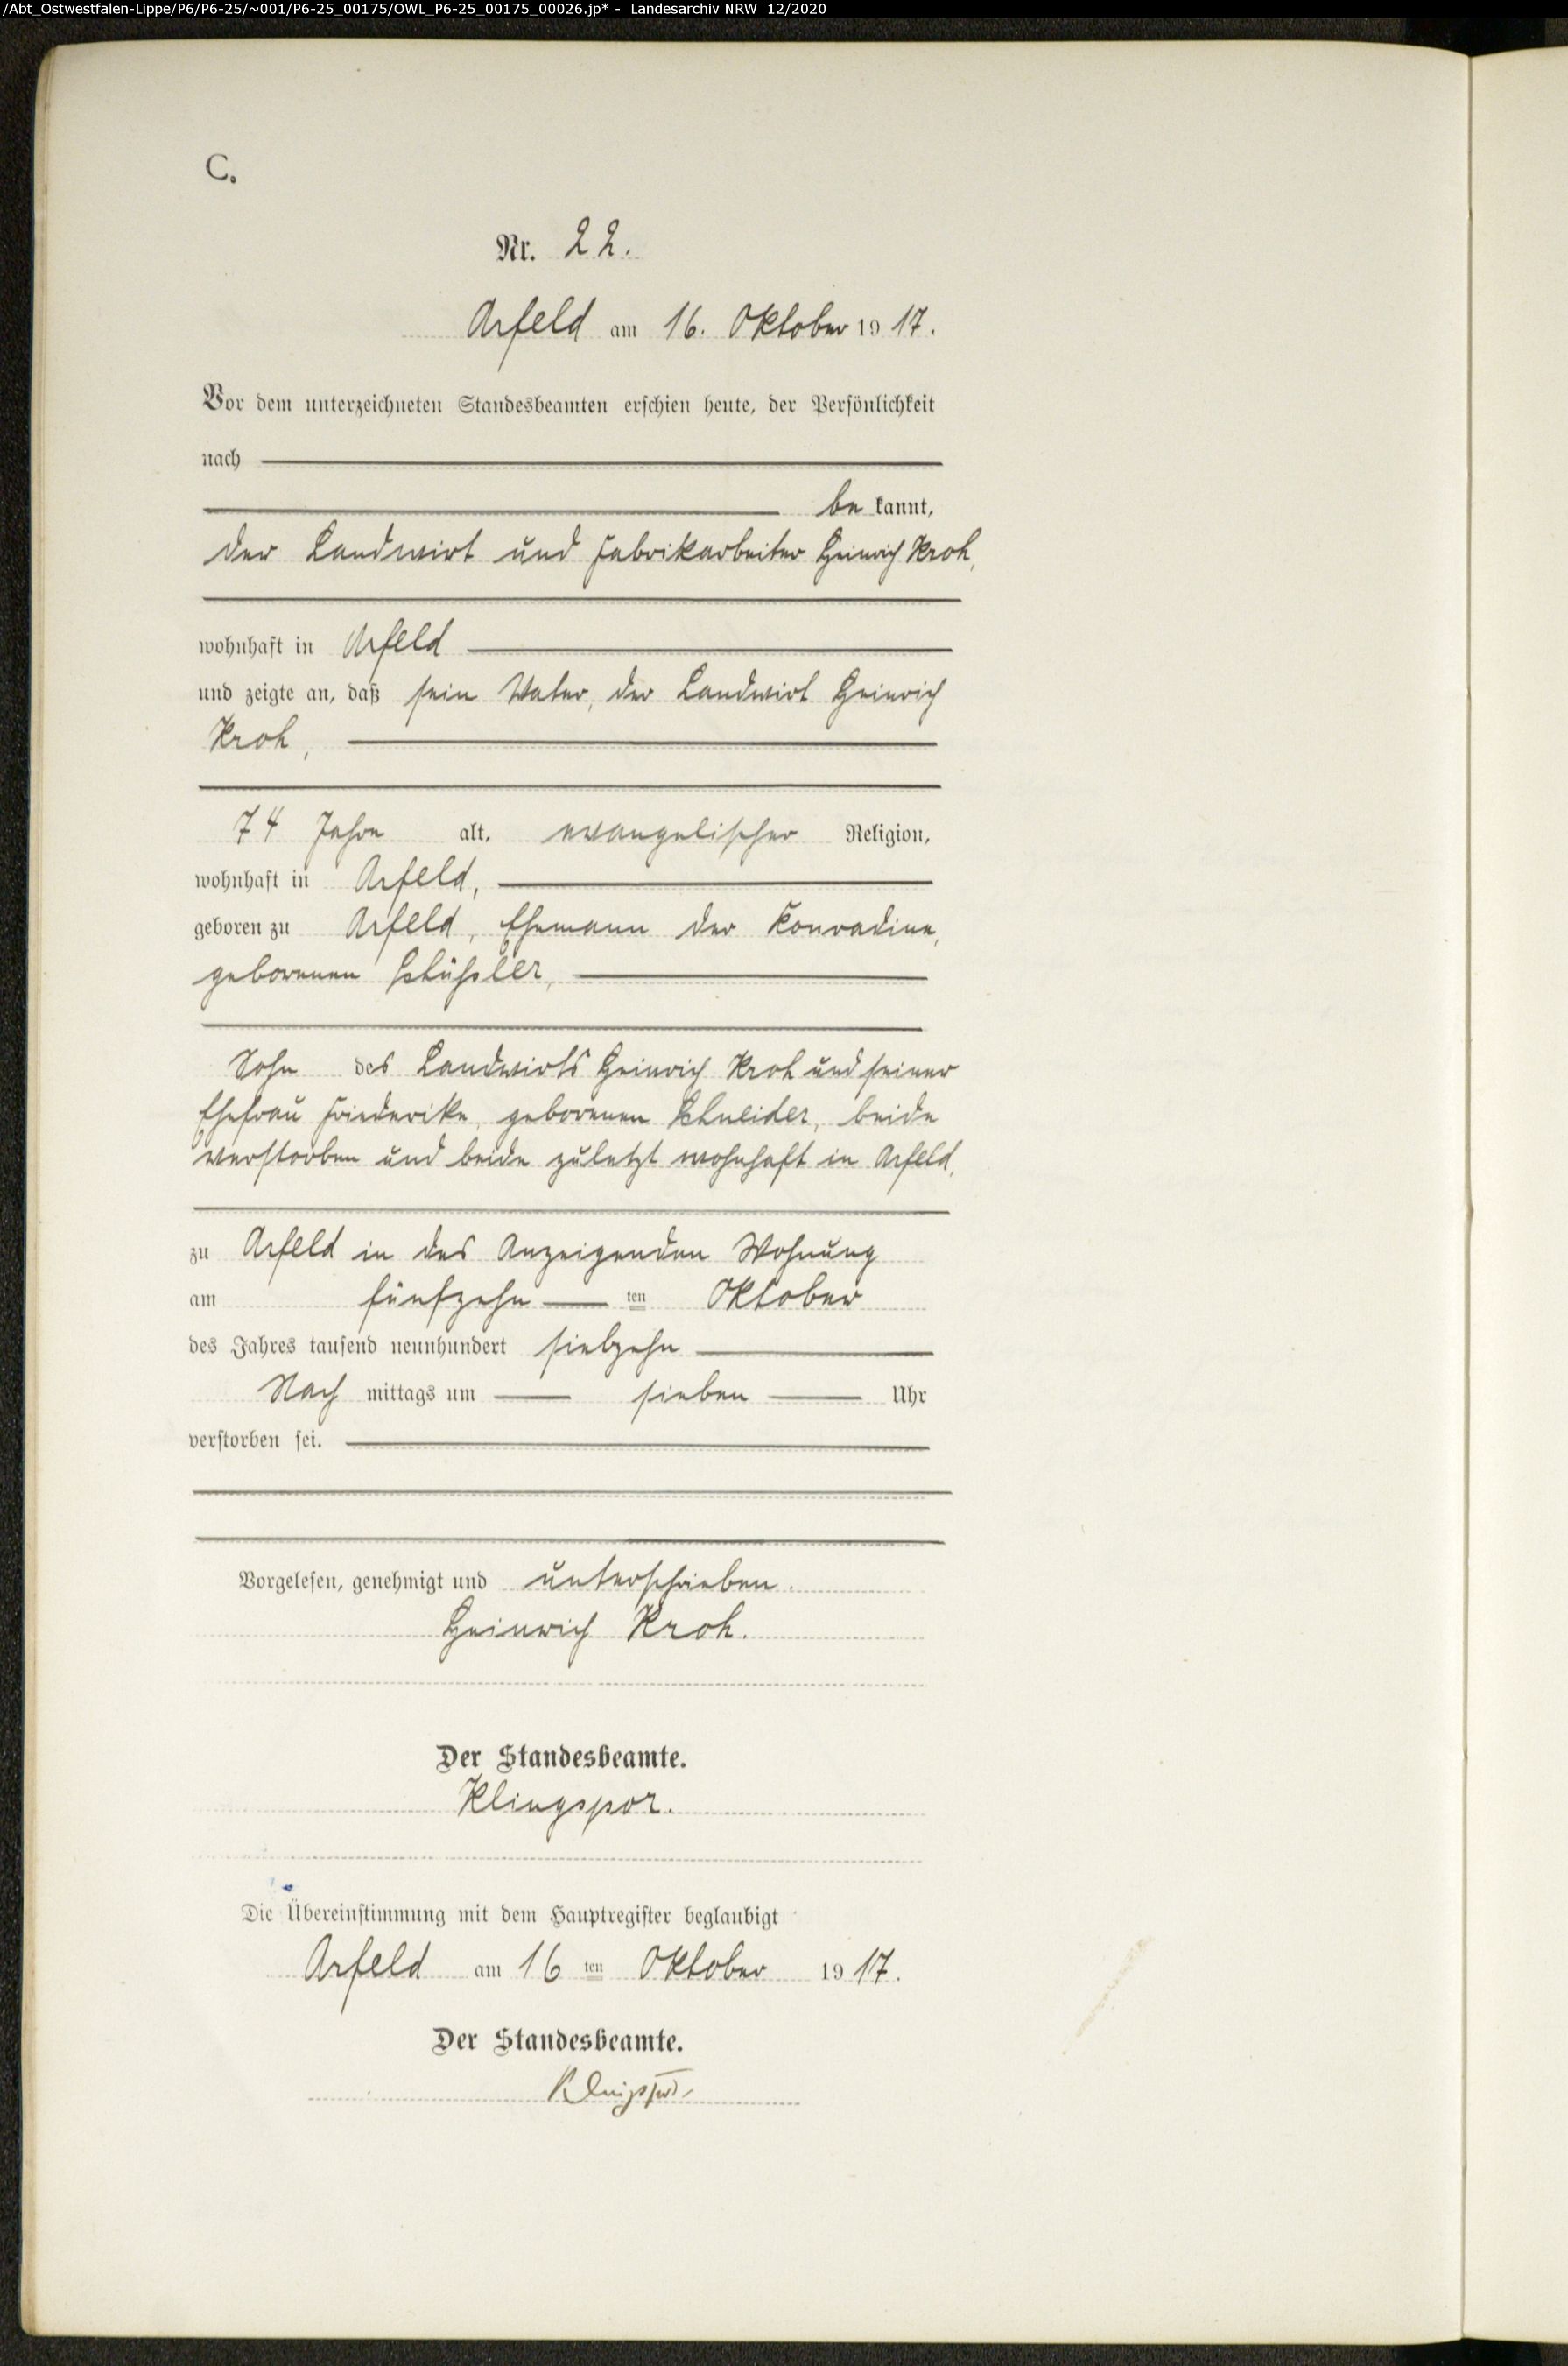 /Abt_Ostwestfalen-Lippe/P6/P6-25/~001/P6-25_00175/OWL_P6-25_00175_00026.jp* - Landesarchiv NRW 12/2020
C.
Nr. 22.
Arfeld am 16. Oktober 1917.
Vor dem unterzeichneten Standesbeamten erschien heute, der Persönlichkeit
nach
be kannt,
der Landwirt und Fabrikarbeiter Heinrich Kroh,
wohnhaft in Arfeld
und zeigte an, daß sein Vater, der Landwirt Heinrich
Kroh,
74 Jahre alt, evangelischer Religion,
wohnhaft in Arfeld,
geboren zu Arfeld, Ehemann der Konradine,
geborenen Schüßler,
Sohn des Landwirts Heinrich Kroh und seiner
Ehefrau Friederike, geborenen Schneider, beide
verstorben und beide zuletzt wohnhaft in Arfeld,
zu Arfeld in des Anzeigenden Wohnung
am fünfzehn ten Oktober
des Jahres tausend neunhundert siebzehn
Nach mittags um sieben Uhr
verstorben sei.
Vorgelesen, genehmigt und unterschrieben.
Heinrich Kroh.
Der Standesbeamte.
Klingspor.
Die Übereinstimmung mit dem Hauptregister beglaubigt
Arfeld am 16 ten Oktober 1917.
Der Standesbeamte.
Klingspor